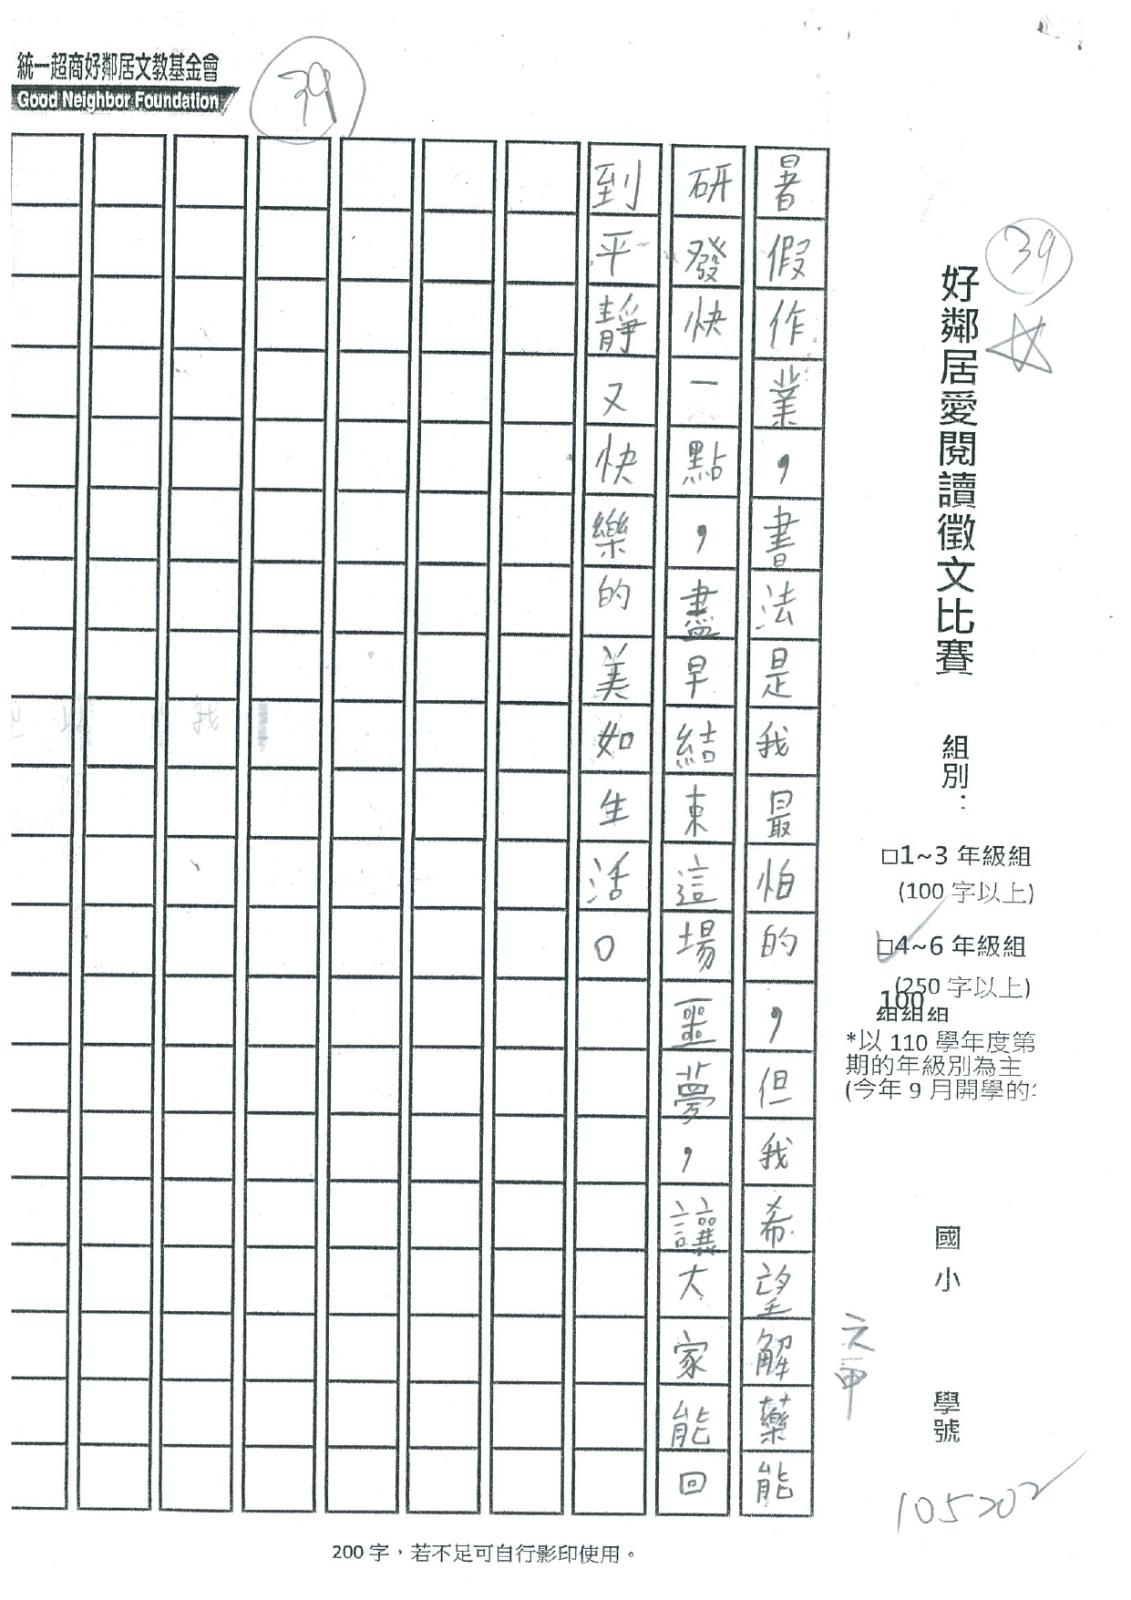 統一超商好鄰居文教基金會
Good Neighbor Foundation
39
39
好鄰居愛閱讀徵文比賽
組別：
□1~3 年級組
(100 字以上)
□4~6 年級組
(250 字以上)
100
組組組
*以 110 學年度第
期的年級別為主
(今年 9 月開學的
國小
學號
六甲
105202
暑假作業，書法是我最怕的，但我希望解藥能
研發快一點，盡早結束這場噩夢，讓大家能回
到平靜又快樂的美如生活。
200 字，若不足可自行影印使用。